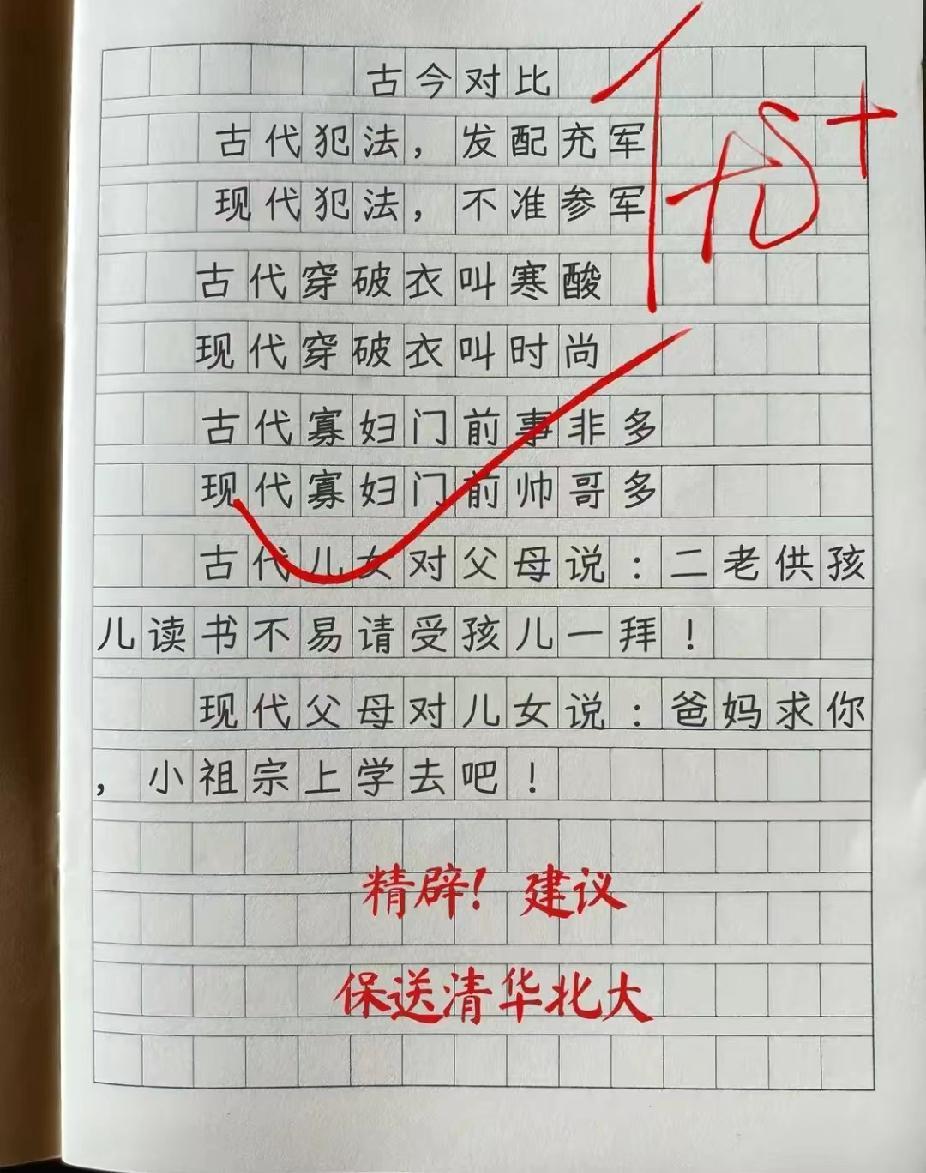 古今对比
古代犯法，发配充军
现代犯法，不准参军
古代穿破衣叫寒酸
现代穿破衣叫时尚
古代寡妇门前事非多
现代寡妇门前帅哥多
古代儿女对父母说：二老供孩
儿读书不易请受孩儿一拜！
现代父母对儿女说：爸妈求你
，小祖宗上学去吧！
优+
精辟！建议
保送清华北大